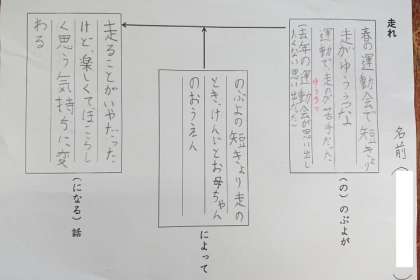 走れ
名前（　　）
春の運動会で短きょり
走がゆううつな
運動で、走るのが苦手だった
(去年の運動会が思い出し
たくない思い出だった)
（の）のぶよが
のぶよの短きょり走の
とき、けんじとお母ちゃん
のおうえん
によって
走ることがいやだった
けど、楽しくて、ほこらし
く思う気持ちに変
わる
（になる）話